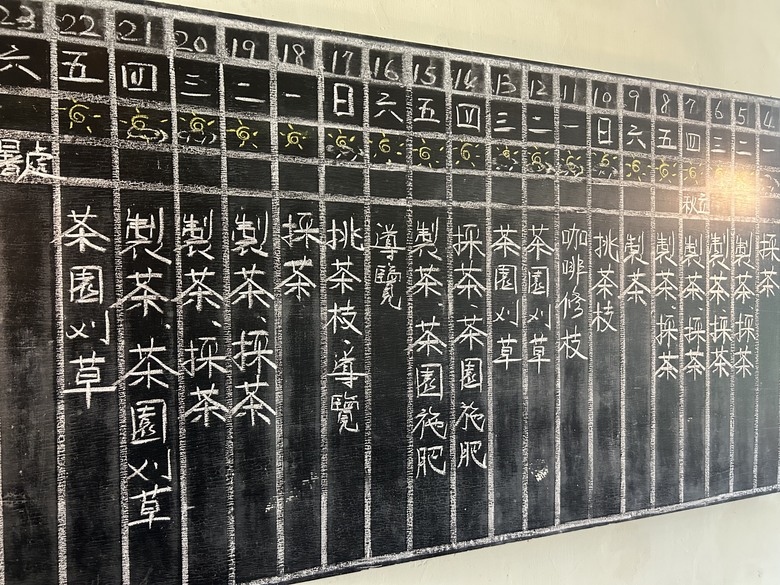 4
一
採茶
5
二
製茶、採茶
6
三
製茶、採茶
7
四
立秋
製茶、採茶
8
五
製茶、採茶
9
六
製茶
10
日
挑茶枝
11
一
咖啡修枝
12
二
茶園刈草
13
三
茶園刈草
14
四
採茶、茶園施肥
15
五
製茶、茶園施肥
16
六
導覽
17
日
挑茶枝、導覽
18
一
採茶
19
二
製茶、採茶
20
三
製茶、採茶
21
四
製茶、茶園刈草
22
五
茶園刈草
23
六
處暑